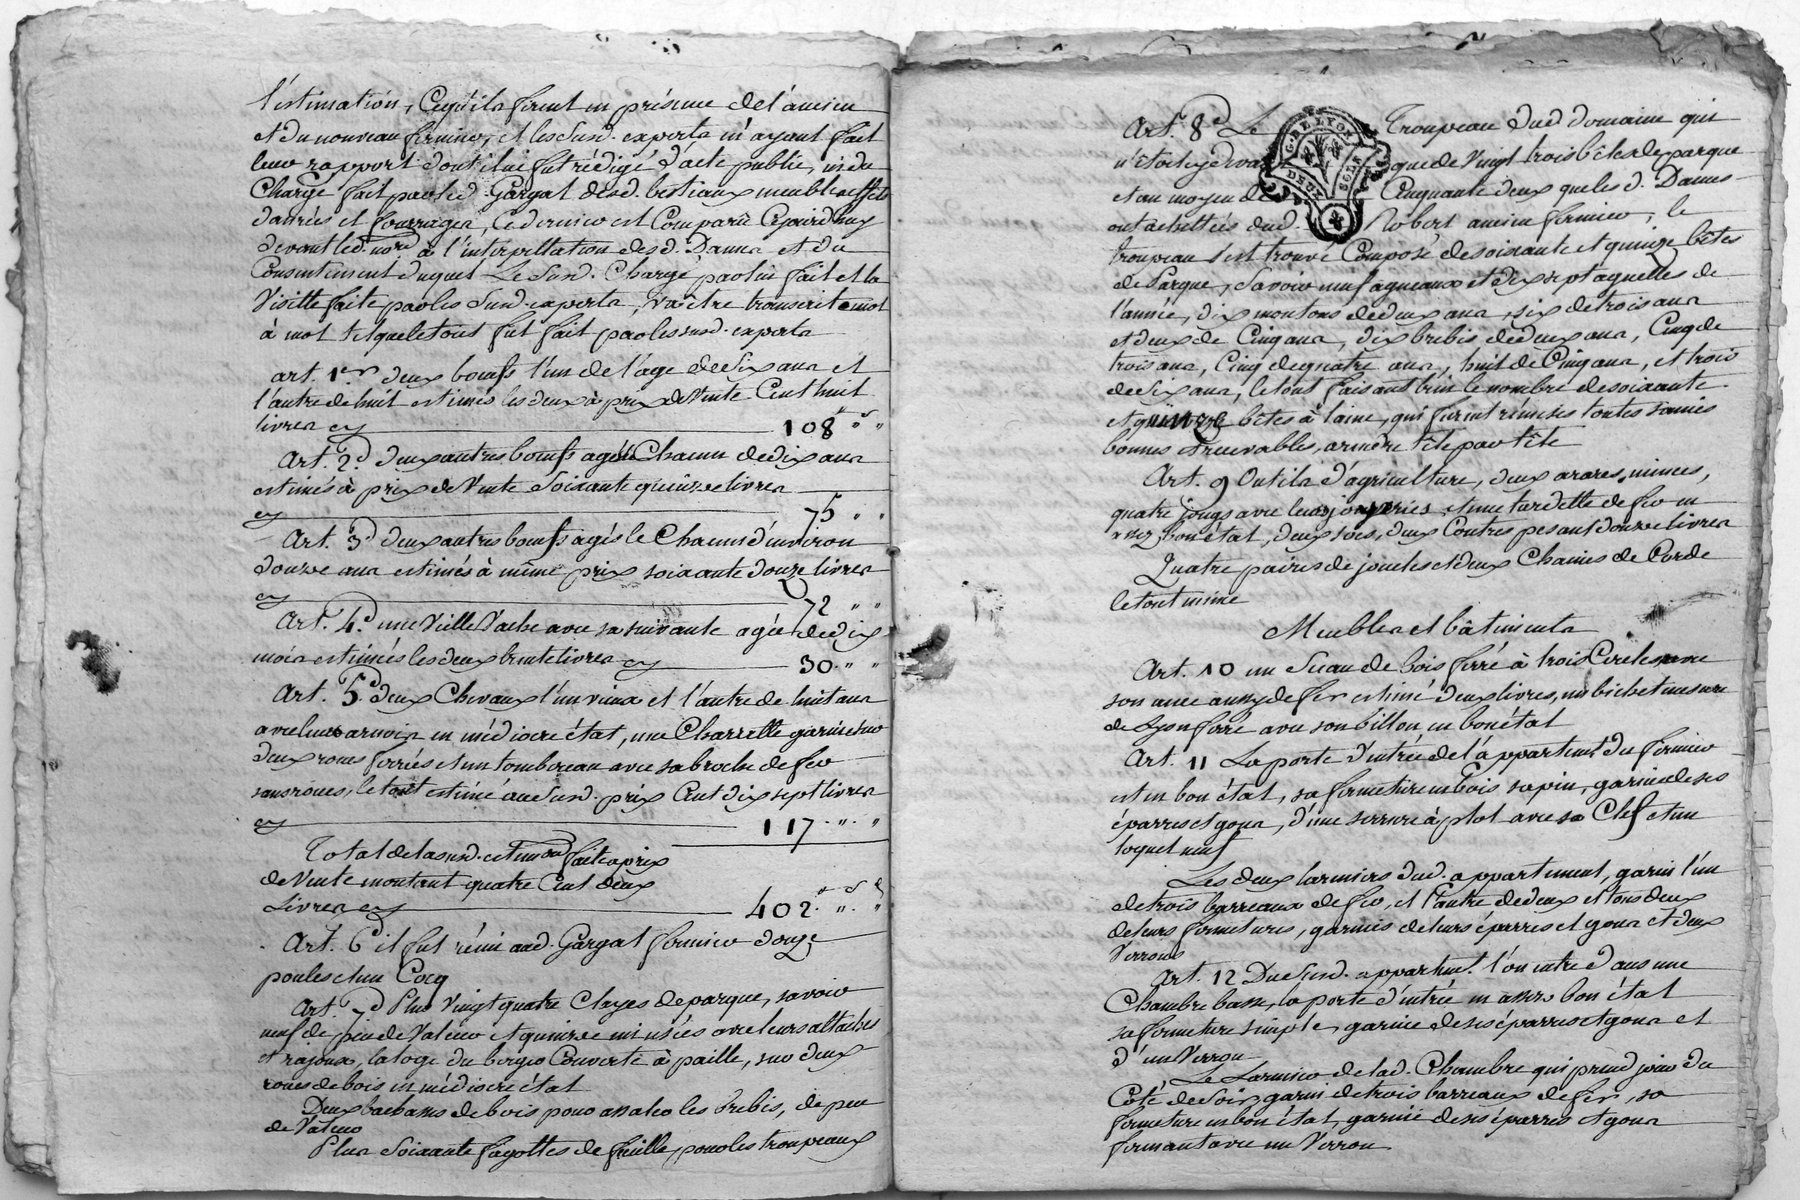 l'estimation, Cequ'ils firent en présence de l'ancien
et du nouveau fermier, et les Susd. experts n'ayant fait
leur rapport dont il ne fut rédigé d'acte public, ni du
Charge fait par led. Gargat desd. bestiaux meubles effets
danrées et fourrages, Ce dernier est Comparu Cejourd'huy
devant led. nore à l'interpellation desd. Dames et du
Consentement duquel Le Susd. Charge par lui fait et la
Visitte faite par les Susd. experts, va être transcrit emot
à mot tel que le tout fut fait par les susd. experts
art. 1er deux boeufs l'un de l'âge de Six ans et
l'autre de huit estimés les deux à prix de Vente Cent huit
livres cy 108 " "
Art. 2d deux autres boeufs agés Chacun de dix ans
estimés à prix de Vente Soixante quinze livres
cy 75 " "
Art. 3d deux autres boeufs agés le Chacun d'environ
douze ans estimés à même prix soixante douze livres
cy 72 " "
Art. 4d une Vielle Vache avec sa suivante agée de dix
mois estimés les deux trente livres cy 30 " "
Art. 5d deux Chevaux l'un vieux et l'autre de huit ans
avec leurs arnois en médiocre état, une Charrette garnie sur
deux roues ferrées et un tombereau avec sa broche de fer
sans roues, le tout estimé au Susd. prix Cent dix sept livres
cy 117 " "
Total de la susd. estimon faite à prix
de Vente montant quatre Cent deux
Livres cy 402 " "
Art. 6e il fut rémi aud. Gargat fermier douze
poules et un Cocq
Art. 7d Plus Vingt quatre Clayes de parque, savoir
neuf de peu de Valeur et quinze mi usées avec leurs attaches
et rajoux, la loge du berger Couverte à paille, sur deux
roues de bois en médiocre état
Deux bachasses de bois pour assaler les brebis, de peu
de Valeur
Plus Soixante fagottes de feuille pour les troupeaux
Art. 8e Le Troupeau dud. domaine qui
n'étoit cy devant que de Vingt trois bêtes de parque
et au moyen de Cinquante deux que les d. Dames
ont achettées dud. Robert ancien fermier, le
troupeau s'est trouvé Composé de soixante et quinze bêtes
de Parque, Savoir neuf agneaux et dix sept agnelles de
l'année, dix moutons de deux ans, six de trois ans
et deux de Cinq ans, dix brebis de deux ans, Cinq de
trois ans, Cinq de quatre ans, huit de Cinq ans, et trois
de Six ans, le tout faisant bien le nombre de soixante
et quinze bêtes à laine, qui furent rémises toutes saines
bonnes et recevables, à rendre tête par tête
Art. 9 Outils d'agriculture, deux arares minces,
quatre jougs avec leurs et une tardette de fer en
assez bon état, deux socs, deux Coutres pesant douze livres
Quatre paires de joueles et deux Chaines de Corde
le tout mince
Meubles et bâtiments
Art. 10 un Seau de bois ferré à trois Cercles avec
son ance aussy de fer estimé deux livres, un bichet mesure
de Lyon ferré avec son billon en bon état
Art. 11 La porte d'entrée de l'appartement du fermier
est en bon état, sa fermeture en bois sapin, garnie de ses
éparres et gons, d'une serrure à plot avec sa Clef et un
loquet neuf
Les deux larmiers dud. appartement, garni l'un
de trois barreaux de fer, et l'autre de deux et tous deux
de leurs fermetures, garnies de leurs éparres et gons et deux
Verrous
Art. 12 Du Susd. appartemt. l'on entre dans une
Chambre basse, la porte d'entrée en assez bon état
sa fermeture simple, garnie de ses éparres et gons et
d'un Verrou
Le Larmier de lad. Chambre qui prend jour du
Côté de Soir garni de trois barreaux de fer, sa
fermeture en bon état, garnie de ses éparres et gons
fermant avec un Verrou
G. DE LYON
DEUX
SOLS